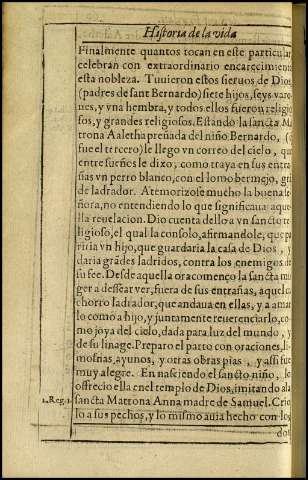 Historia de la vida
Finalmente quantos tocan en este particular
celebran con extraordinario encarecimien
esta nobleza. Tuuieron estos sieruos de Dios
(padres de sant Bernardo) siete hijos, seys varo
nes, y vna hembra, y todos ellos fueron religio
sos, y grandes religiosos. Estando la sancta Ma
trona Aaletha preñada del niño Bernardo, (q̃
fue el tercero) le llego vn correo del cielo, que
entre sueñes le dixo, como traya en sus entra
ñas vn perro blanco, con el lomo bermejo, gr
de ladrador. Atemorizose mucho la buena se
ñora, no entendiendo lo que significaua aque
lla reuelacion. Dio cuenta dello a vn sancto re
ligioso, el qual la consolo, afirmandole, que pa
riria vn hijo, que guardaria la casa de Dios, y
daria grãdes ladridos, contra los enemigos de
su fee. Desde aquella ora començo la sancta mu
ger a dessear ver, fuera de sus entrañas, aquel ca
chorro ladrador, que andaua en ellas, y a amar
lo como a hijo, y juntamente reuerenciarlo, co
mo joya del cielo, dada para luz del mundo, y
de su linage. Preparo el parto con oraciones, li
mosnas, ayunos, y otras obras pias, y assi fue
muy alegre. En nasciendo el sancto niño, le
offrecio ella en el templo de Dios, imitando a la
1.Reg.1. sancta Matrona Anna madre de Samuel. Crio
lo a sus pechos, y lo mismo auia hecho con los
dos